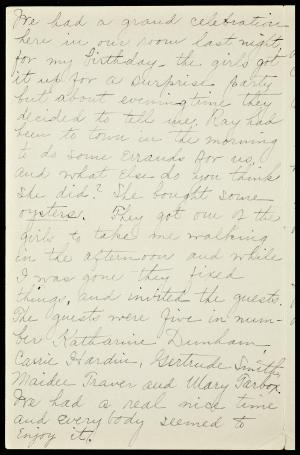 We had a grand celebration
here in our room last night,
for my birthday. the girls got
it up for a surprise party
but about evening time they
decided to tell me. Ray had
been to town in the morning
to do some errands for us,
and what else do you think
she did? She bought some
oysters. They got one of the
girls to take me walking
in the afternoon and while
I was gone they fixed
things, and invited the guests.
The guests were five in num-
ber Katharine Dunham
Carrie Hardin, Gertrude Smith,
Maidee Traver and Mary Tarbox.
We had a real nice time
and everybody seemed to
enjoy it.